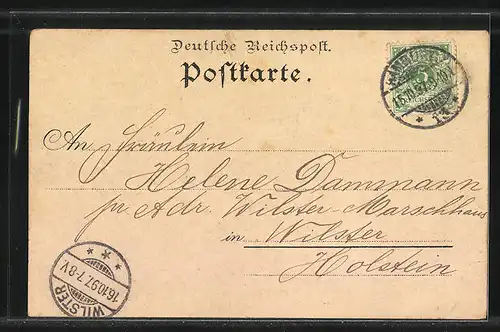 Deutsche Reichspost.
Postkarte.
An Fräulein
Helene Dammann
pr Adr. Wilster-Marschhaus
in Wilster
Holstein
WILSTER
16.10.97.7-8V.
* * *